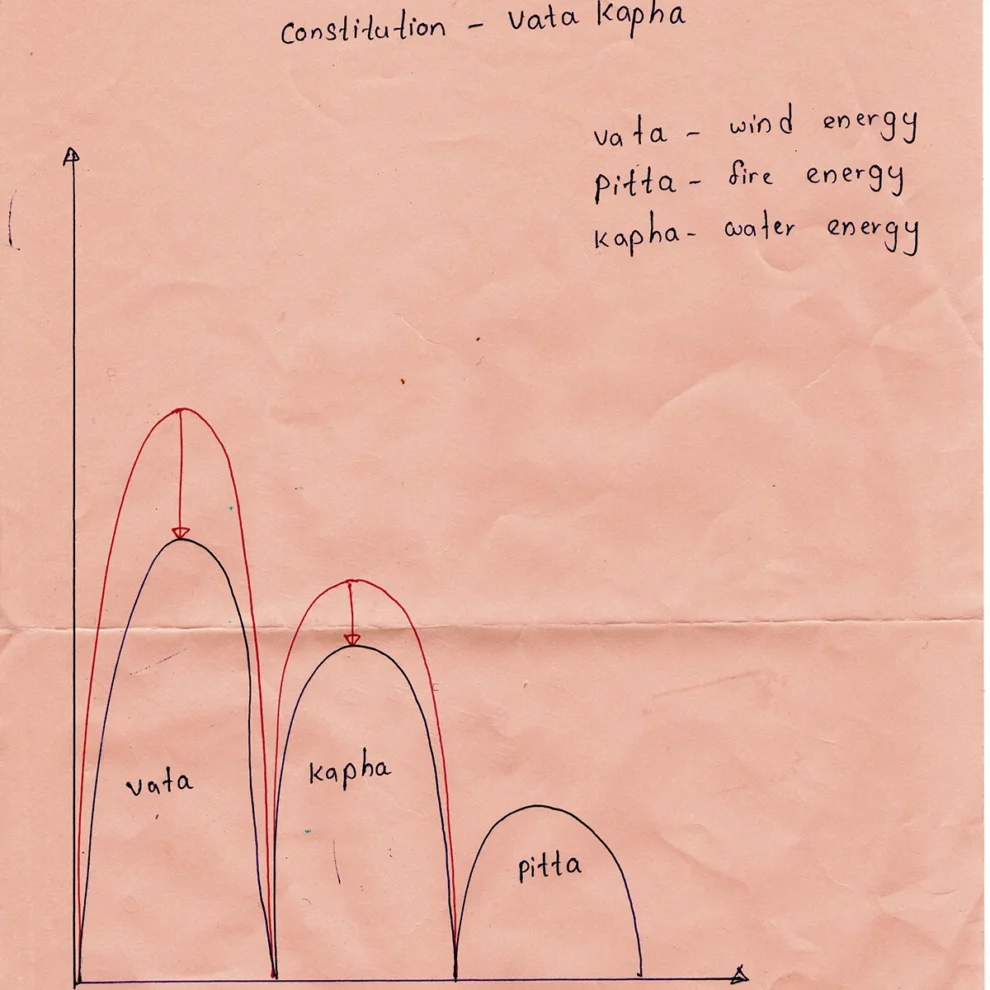 Constitution - Vata Kapha
vata - wind energy
pitta - fire energy
kapha - water energy
vata
kapha
pitta